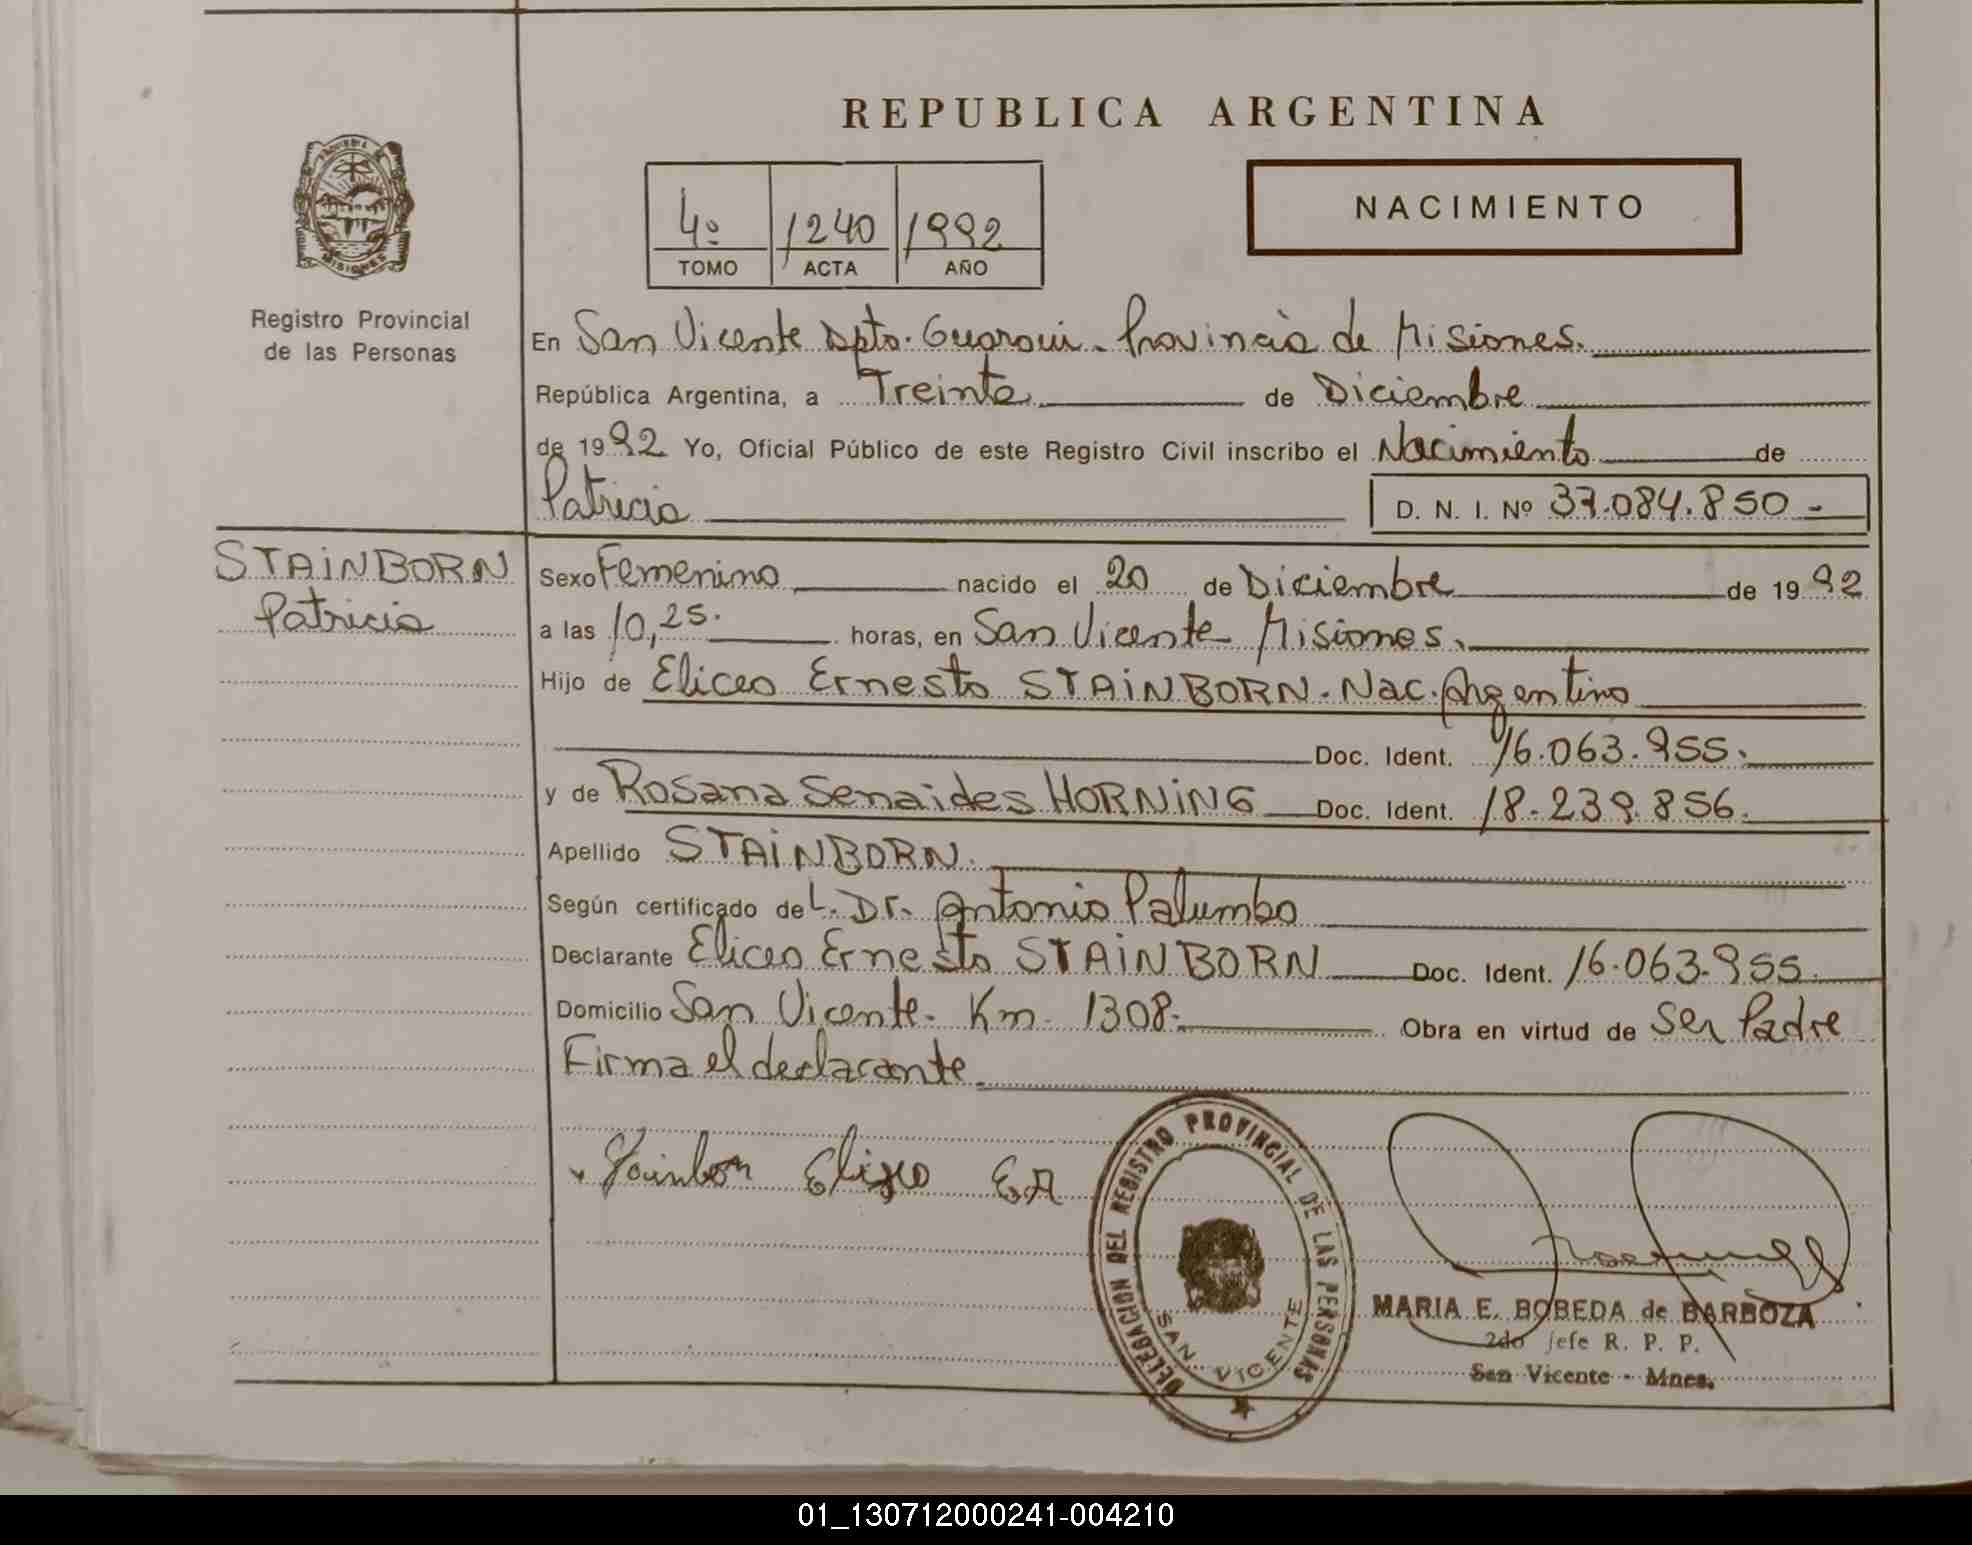 REPUBLICA ARGENTINA
NACIMIENTO
4º 1240 1992
TOMO ACTA AÑO
PROVINCIA DE
MISIONES
Registro Provincial
de las Personas
En San Vicente Dpto. Guarani. Provincia de Misiones.
República Argentina, a Treinta de Diciembre
de 1992 Yo, Oficial Público de este Registro Civil inscribo el Nacimiento de
Patricia D. N. I. Nº 37.084.850.-
STAINBORN
Patricia
Sexo Femenino nacido el 20 de Diciembre de 1992
a las 10,25. horas, en San Vicente Misiones.
Hijo de Eliceo Ernesto STAINBORN. Nac. Argentino
Doc. Ident. 16.063.955.
y de Rosana Senaides HORNING Doc. Ident. 18.239.856.
Apellido STAINBORN.
Según certificado de L. Dr. Antonio Palumbo
Declarante Eliceo Ernesto STAINBORN Doc. Ident. 16.063.955.
Domicilio San Vicente. Km. 1308. Obra en virtud de Ser Padre
Firma el declarante
DELEGACION DEL REGISTRO PROVINCIAL DE LAS PERSONAS
SAN VICENTE
MARIA E. BOBEDA de BARBOZA
2do Jefe R. P. P.
San Vicente - Mnes.
01_130712000241-004210